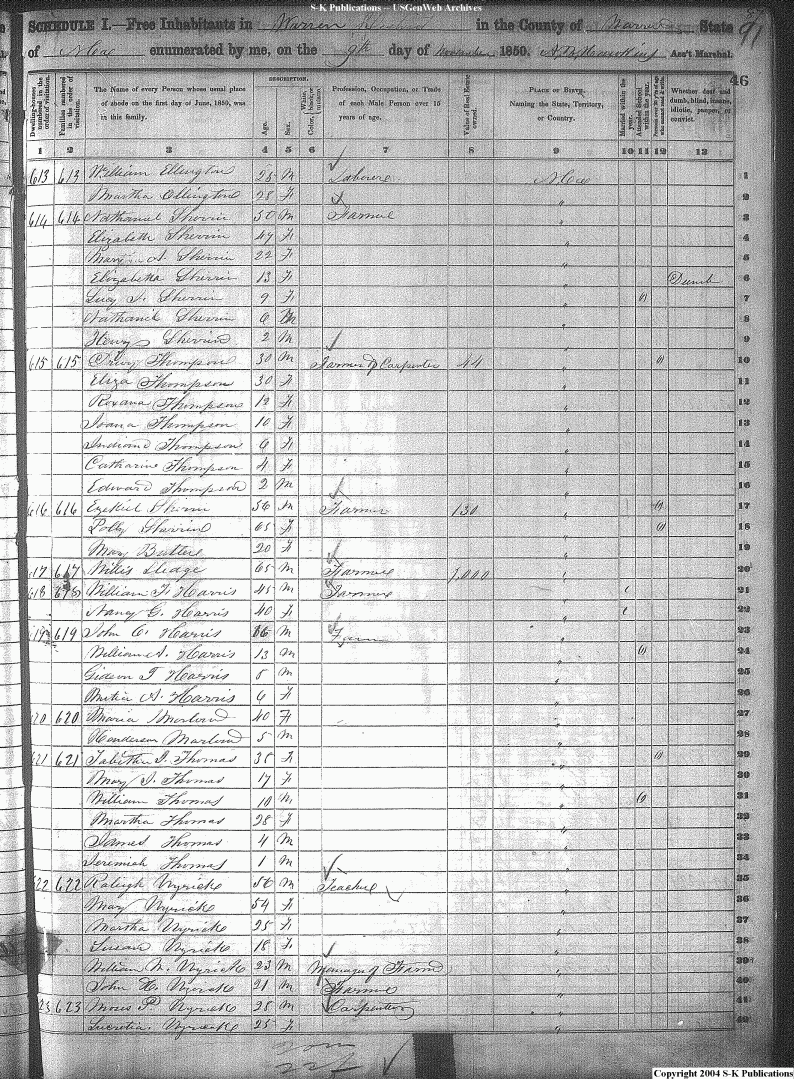 S-K Publications -- USGenWeb Archives
SCHEDULE I.—Free Inhabitants in Warren in the County of Warren State 91
of N Ca enumerated by me, on the 9th day of November 1850. Ass't Marshal.
46
Dwelling-houses numbered in the order of visitation.
Families numbered in the order of visitation.
The Name of every Person whose usual place of abode on the first day of June, 1850, was in this family.
DESCRIPTION.
Age.
Sex.
Color, White, black, or mulatto.
Profession, Occupation, or Trade of each Male Person over 15 years of age.
Value of Real Estate owned.
PLACE OF BIRTH. Naming the State, Territory, or Country.
Married within the year.
Attended School within the year.
Persons over 20 y'rs of age who cannot read & write.
Whether deaf and dumb, blind, insane, idiotic, pauper, or convict.
1 2 3 4 5 6 7 8 9 10 11 12 13
613 613 William Ellington 25 M Laborer N Ca 1
Martha Ellington 28 F " 2
614 614 Nathaniel Sherrin 50 M Farmer " 3
Elizabeth Sherrin 47 F " 4
Mary A Sherrin 22 F " 5
Elizabetha Sherrin 13 F " Dumb 6
Lucy J. Sherrin 9 F " 1 7
Nathaniel Sherrin 6 M " 8
Henry Sherrin 2 M " 9
615 615 Drury Thompson 30 M Farmer & Carpenter 44 " 1 10
Eliza Thompson 30 F " 11
Roxana Thompson 12 F " 12
Joana Thompson 10 F " 13
Indiana Thompson 6 F " 14
Catharine Thompson 4 F " 15
Edward Thompson 2 M " 16
616 616 Ezekiel Sherrin 56 M Farmer 130 " 1 17
Polly Sherrin 65 F " 1 18
Mary 20 F " 19
617 617 Willis Sledge 65 M Farmer 1,000 " 20
618 618 William F. Harris 45 M Farmer " 1 21
Nancy G. Harris 40 F " 1 22
619 619 John C. Harris 16 M Farmer " 23
William A. Harris 13 M " 1 24
Gideon T Harris 8 M " 25
A. Harris 6 F " 26
620 620 Maria 40 F " 27
Henderson 5 M " 28
621 621 Tabitha J. Thomas 38 F " 1 29
Mary J. Thomas 17 F " 30
William Thomas 10 M " 1 31
Martha Thomas 28 F " 32
James Thomas 4 M " 33
Jeremiah Thomas 1 M " 34
622 622 Raleigh Nyrick 56 M Teacher " 35
Mary Nyrick 54 F " 36
Martha Nyrick 25 F " 37
Susan Nyrick 18 F " 38
William N. Nyrick 23 M Manager of Farm " 39
John H. Nyrick 21 M Farmer " 40
623 623 Moses P Nyrick 28 M Carpenter " 41
Lucretia Nyrick 23 F " 42
Copyright 2004 S-K Publications